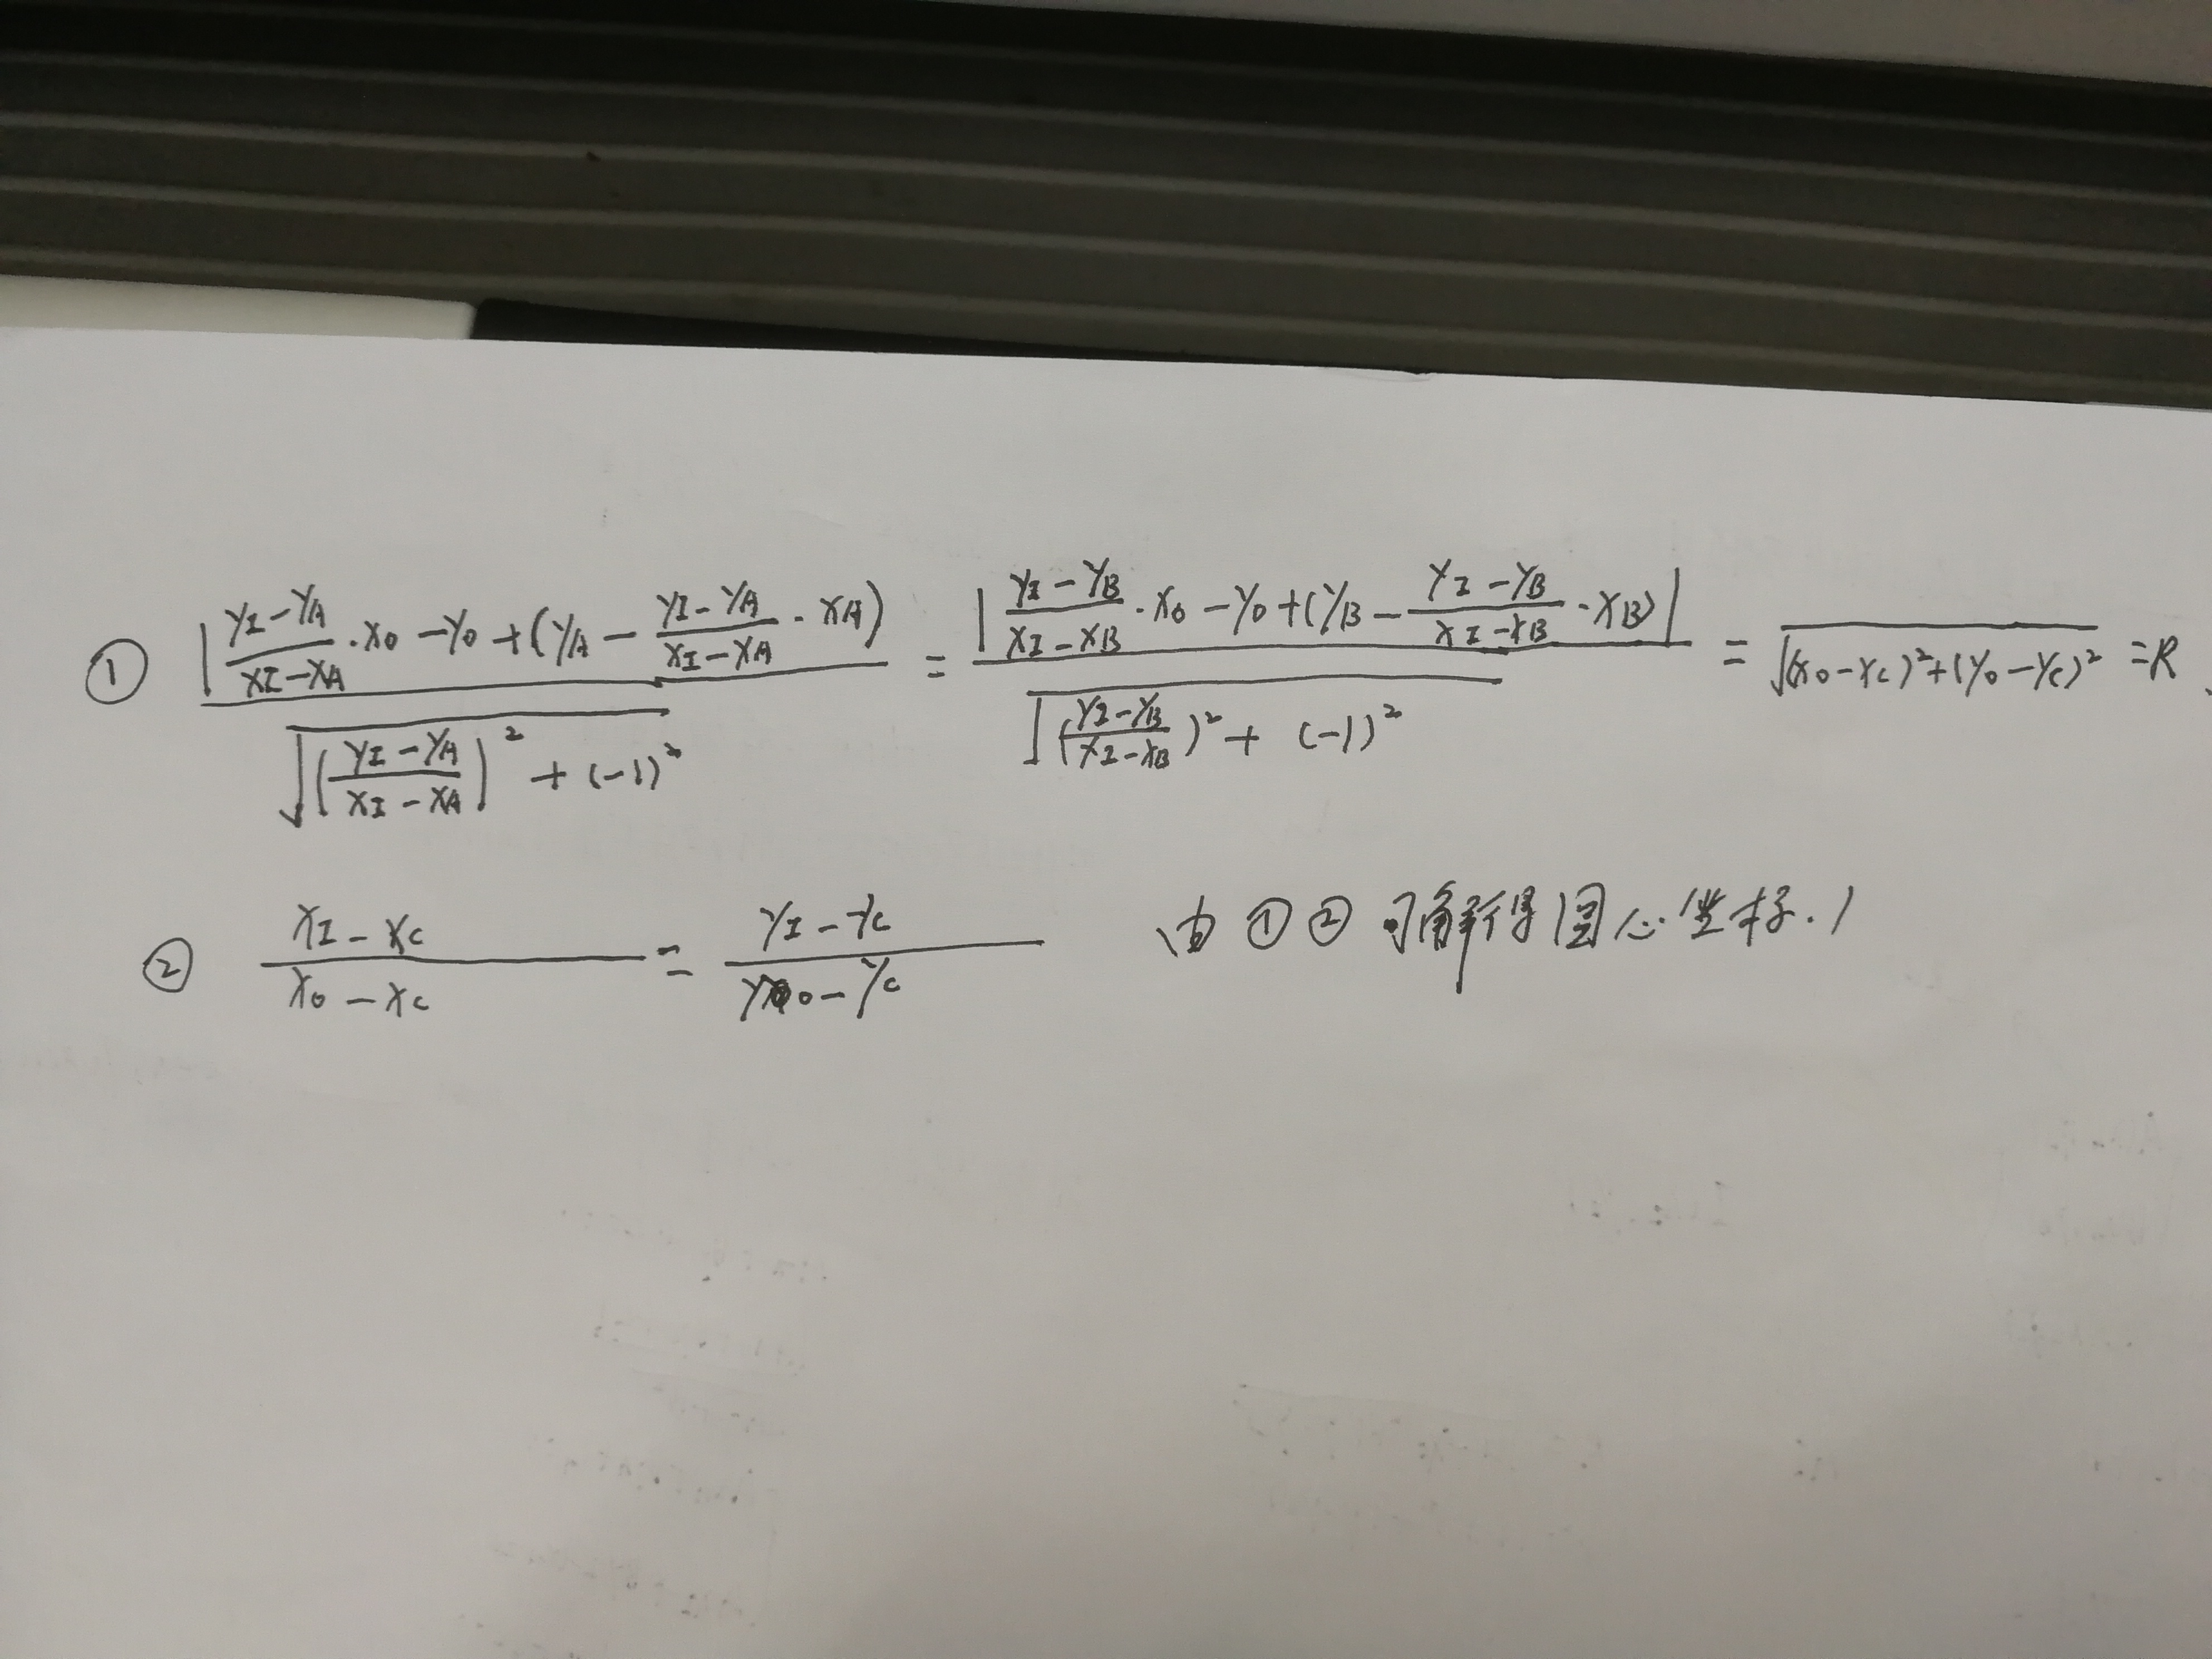 ① |(Y_I-Y_A)/(X_I-X_A)·X_0-Y_0+(Y_A-(Y_I-Y_A)/(X_I-X_A)·X_A)/√(((Y_I-Y_A)/(X_I-X_A))²+(-1)²) = |(Y_I-Y_B)/(X_I-X_B)·X_0-Y_0+(Y_B-(Y_I-Y_B)/(X_I-X_B)·X_B)|/√(((Y_I-Y_B)/(X_I-X_B))²+(-1)²) = √((X_0-X_C)²+(Y_0-Y_C)²) = R
② (X_I-X_C)/(X_0-X_C) = (Y_I-Y_C)/(Y_0-Y_C) 由①②可解得圆心坐标.